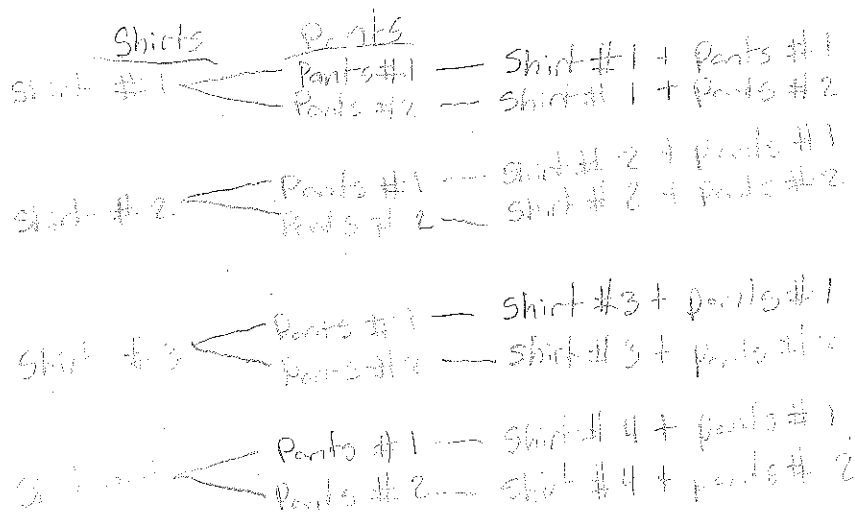 Shirts Pants
Shirt #1 Pants #1 — Shirt #1 + Pants #1
Pants #2 — Shirt #1 + Pants #2
Shirt #2 Pants #1 — Shirt #2 + pants #1
Pants #2 — Shirt #2 + pants #2
Shirt #3 Pants #1 — Shirt #3 + pants #1
Pants #2 — Shirt #3 + pants #2
Pants #1 — Shirt #4 + pants #1
Pants #2 — Shirt #4 + pants #2